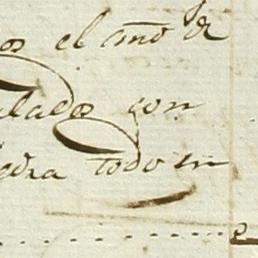 os el año de
lados con
edra todo en